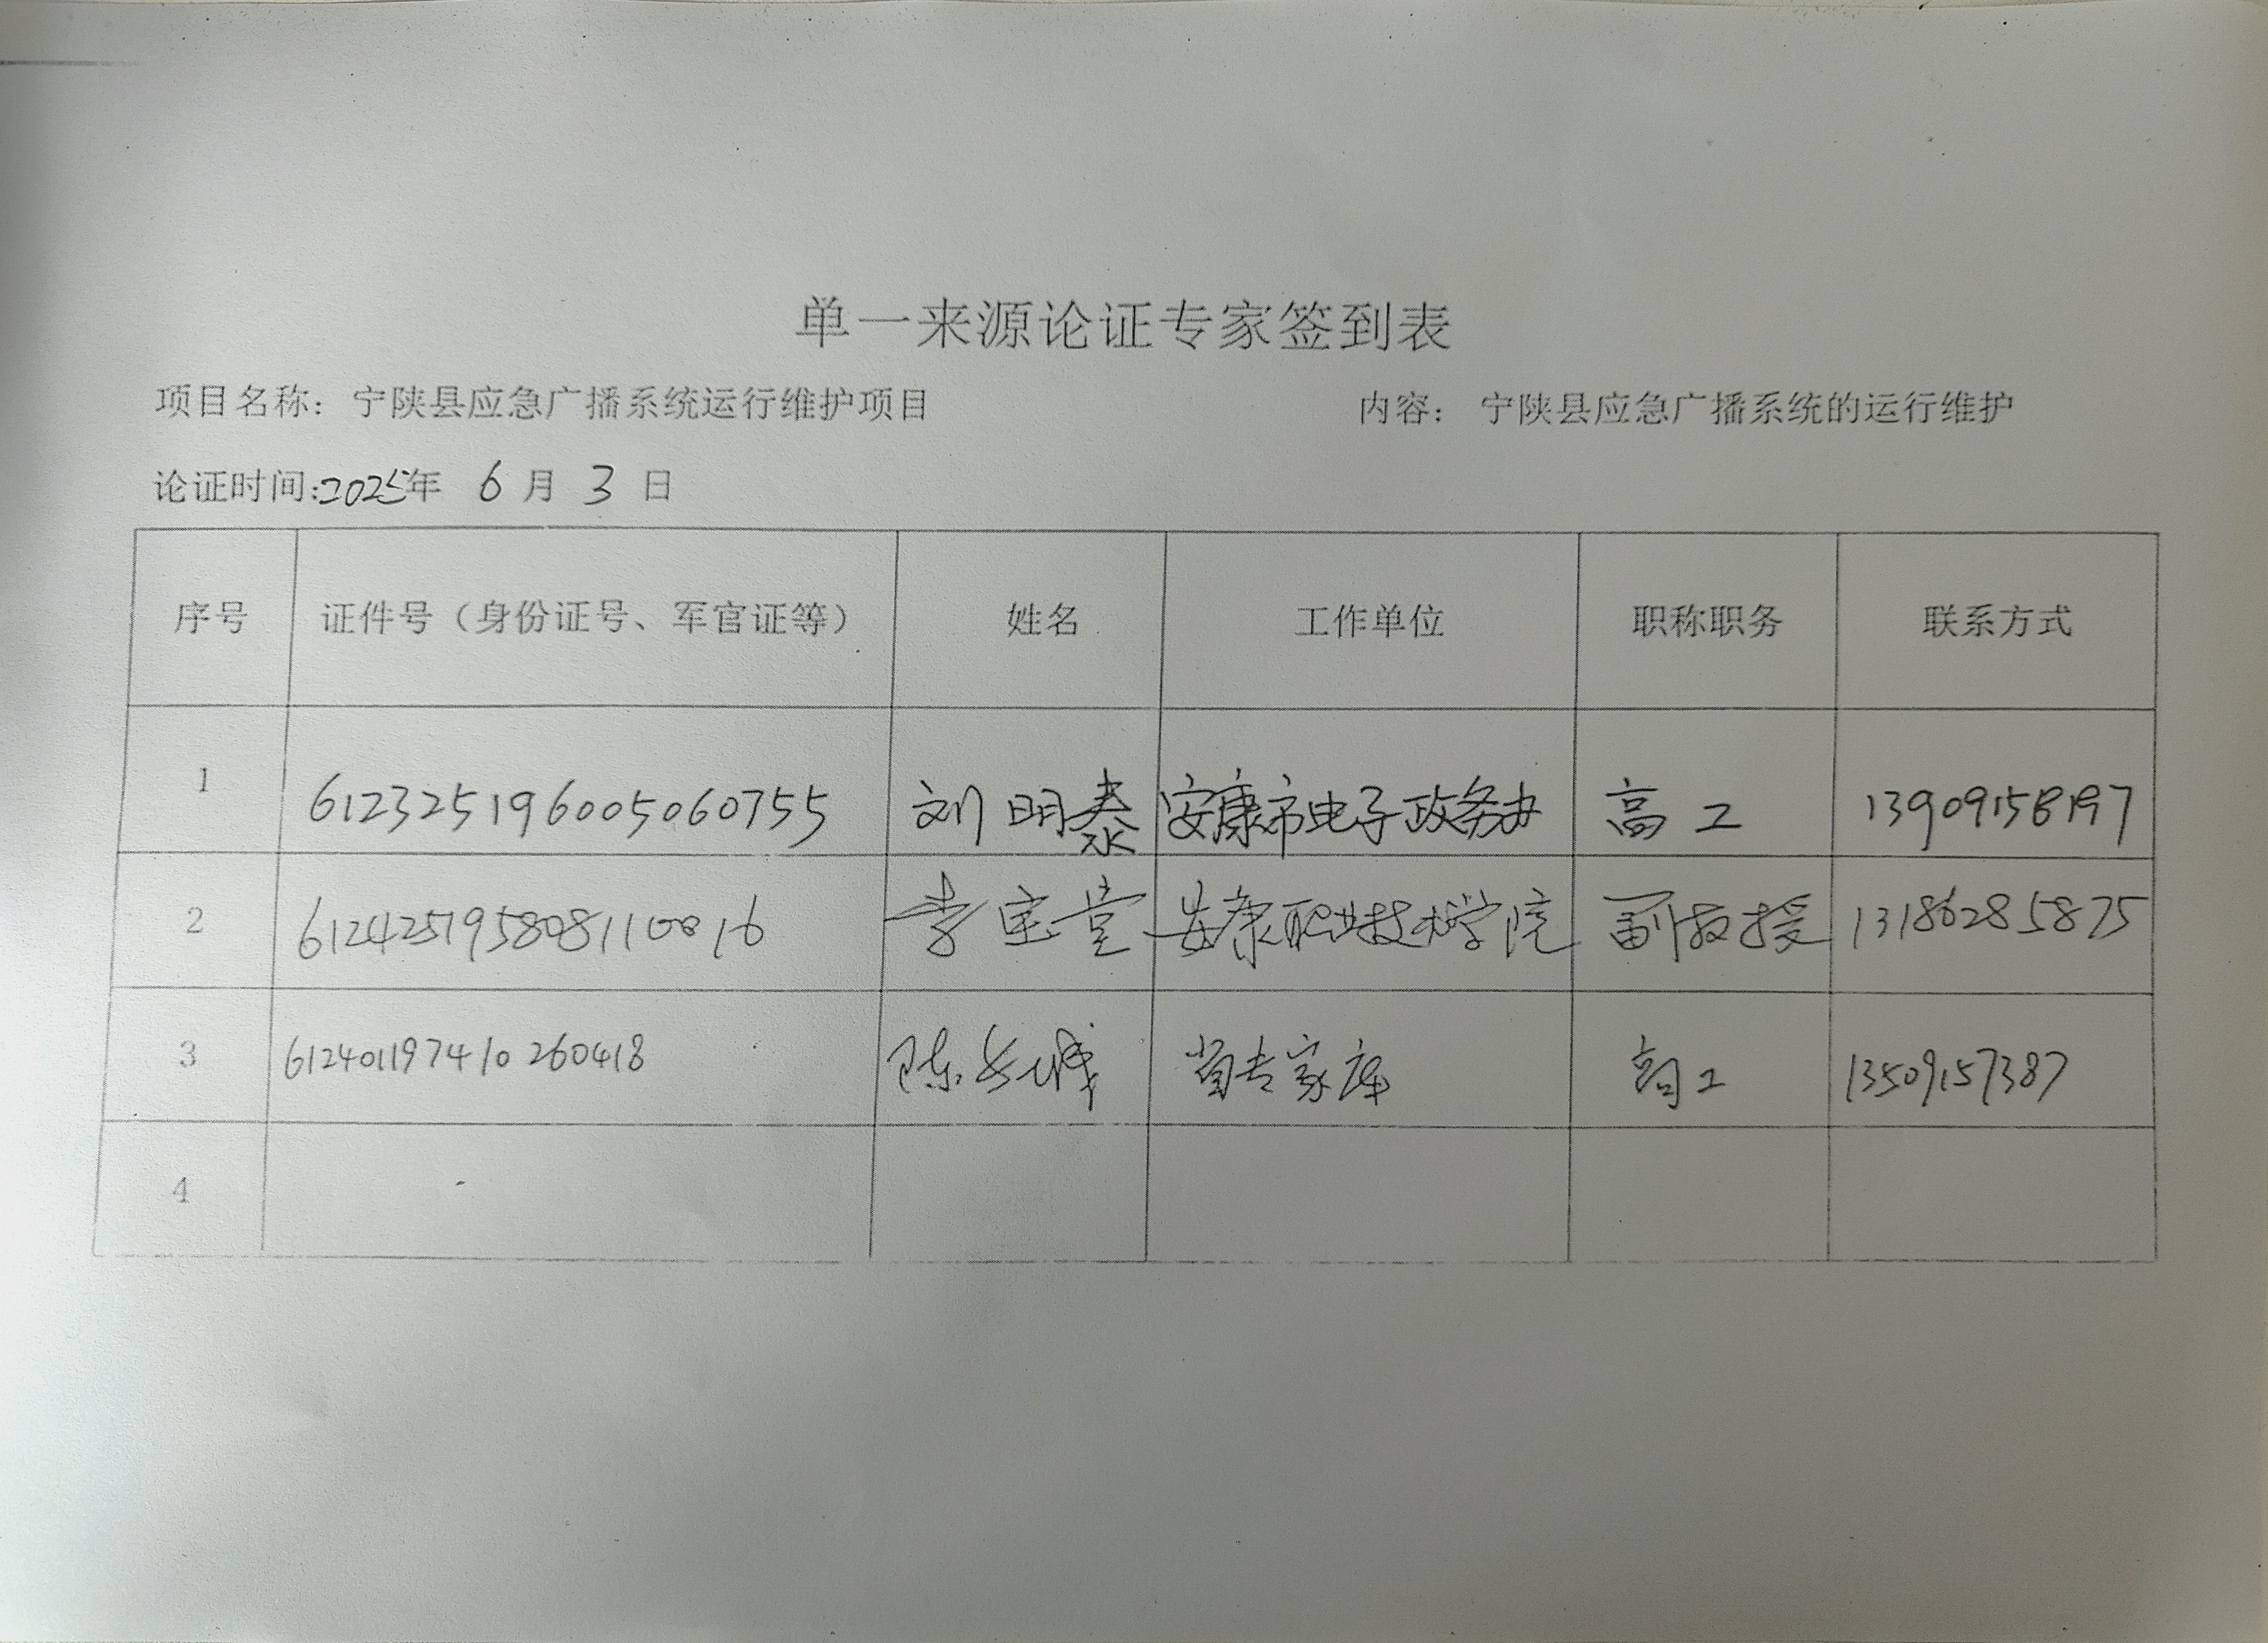 单一来源论证专家签到表
项目名称：宁陕县应急广播系统运行维护项目 内容：宁陕县应急广播系统的运行维护
论证时间:2025年 6 月 3 日
序号 证件号（身份证号、军官证等） 姓名 工作单位 职称职务 联系方式
1 612325196005060755 刘明泰 安康市电子政务办 高工 13909158197
2 612425195808110016 李宝堂 安康职业技术学院 副教授 13186285875
3 612401197410260418 陈长城 省专家库 高工 13509157387
4